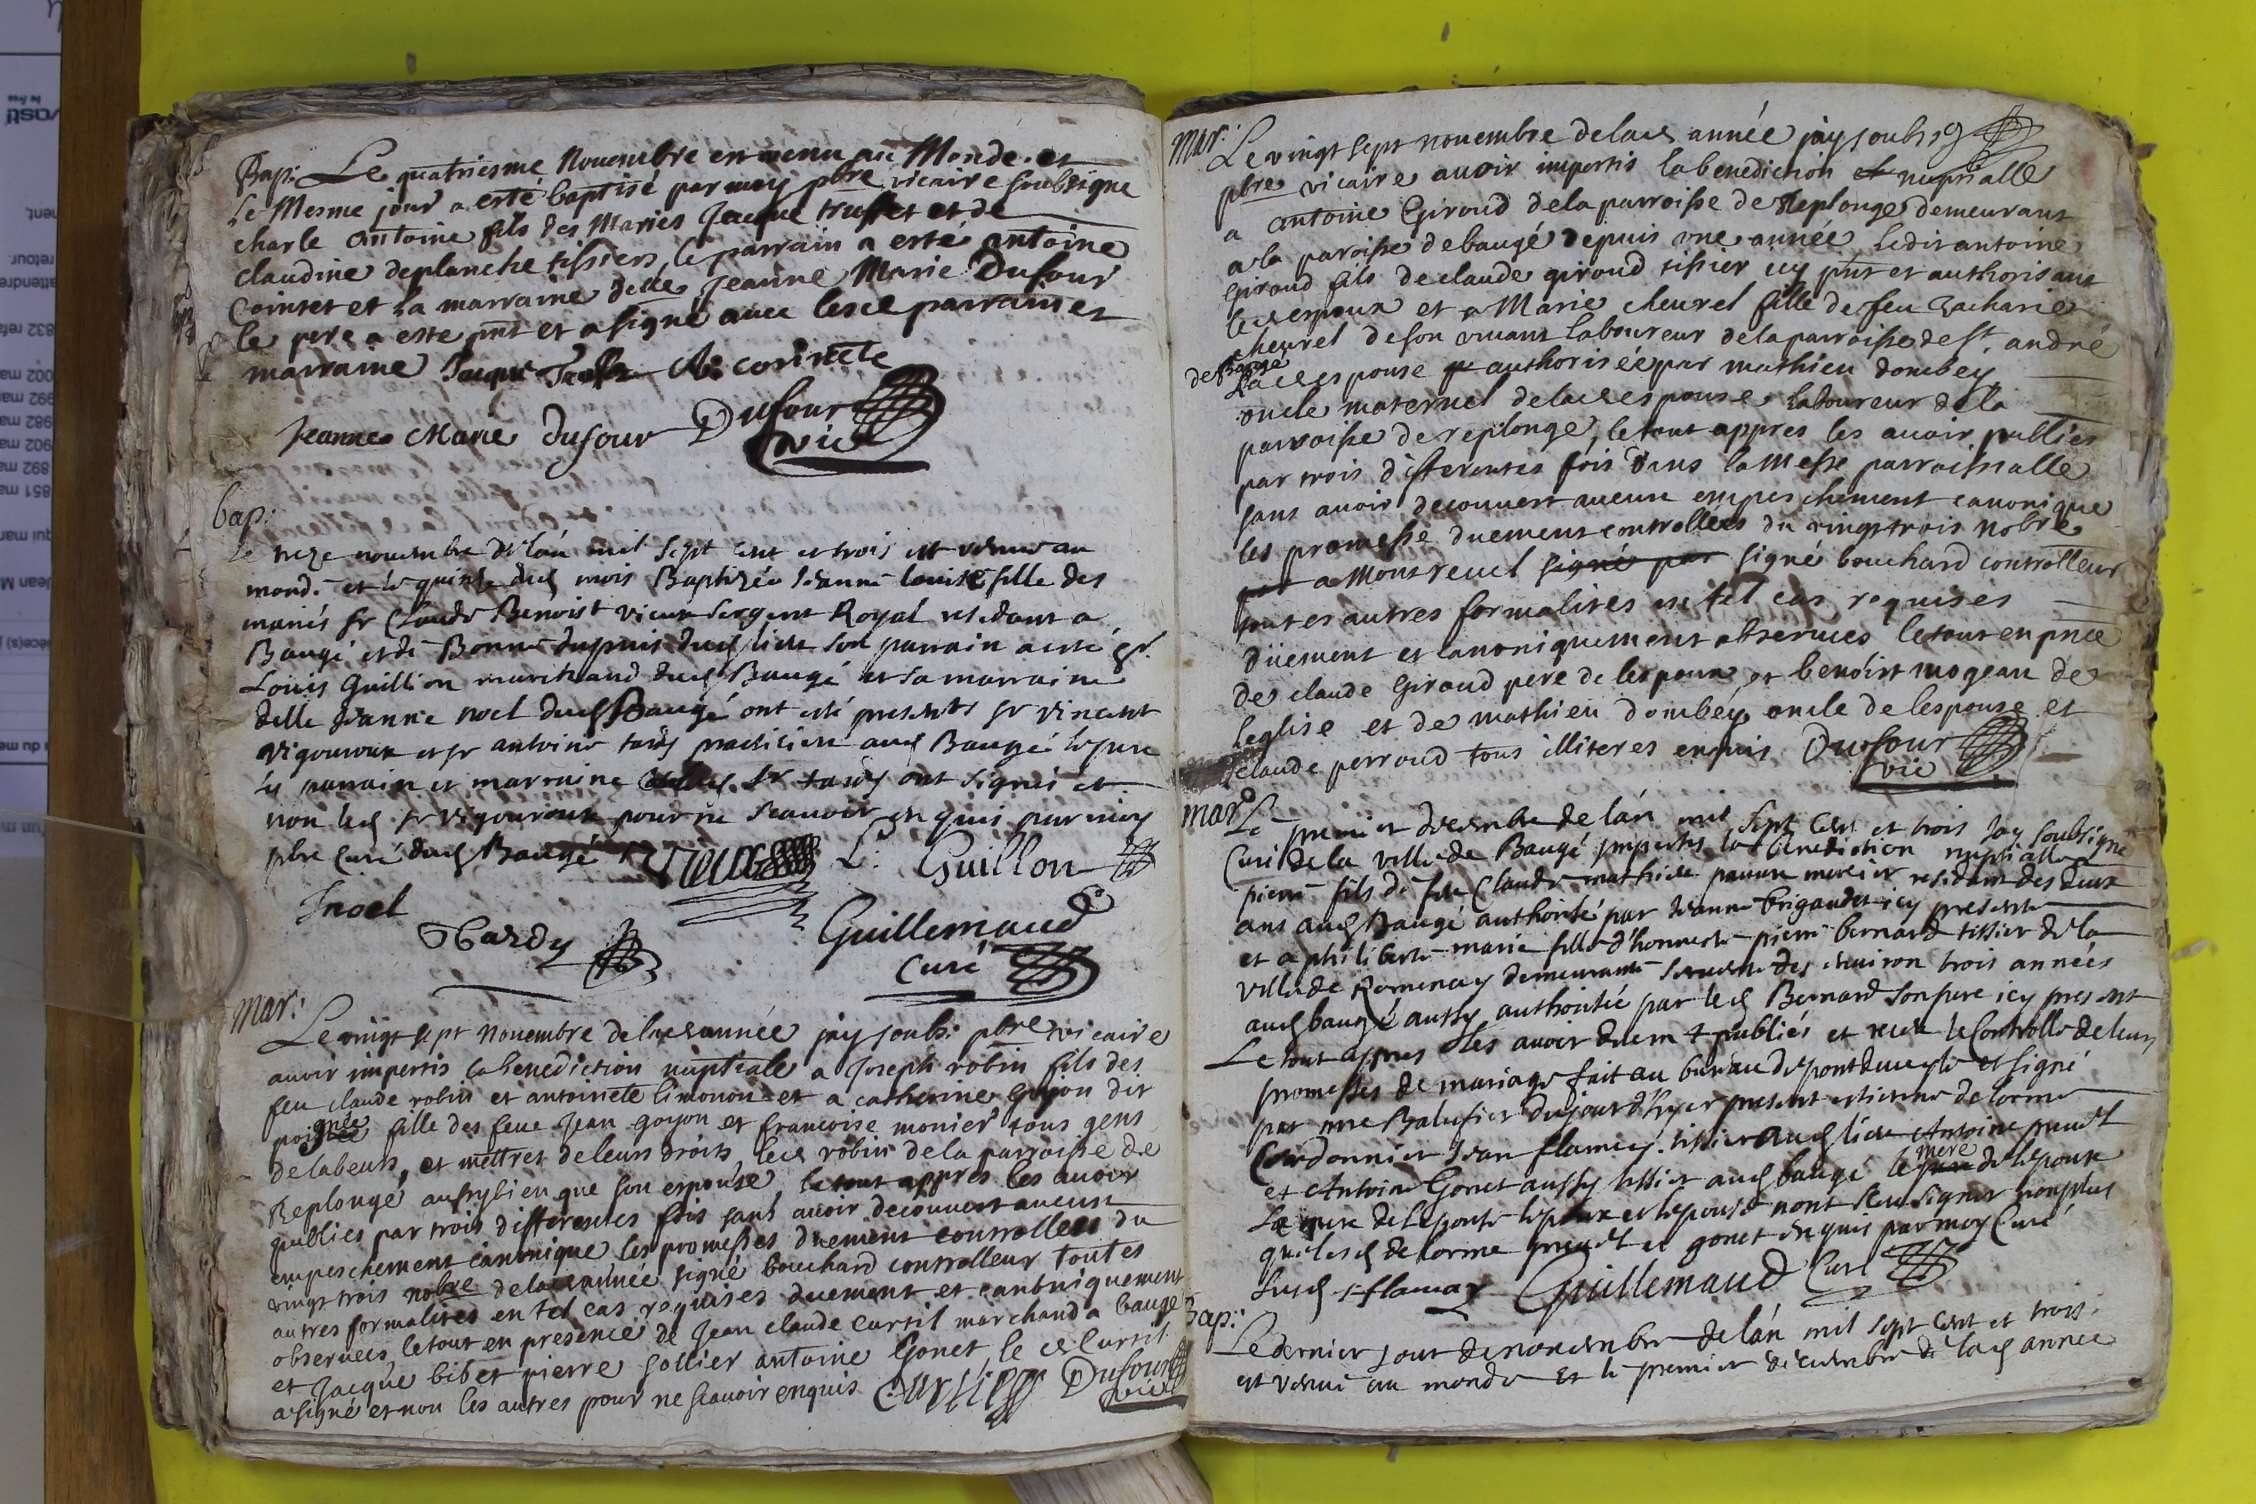 Bap: Le quatriesme Nouembre est venu au Monde et
le Mesme jour a esté baptisé par moy pbre vicaire soubsigné
charle antoine fils des Mariés Jacque truffet et de
claudine deplanche tissiers, le parrain a esté antoine
Comtet et la marraine delle Jeanne Marie Dufour
le pere a este pnt et a signé auec lesd parrain et
marraine Jaque A: contete
Jeanne Marie dufour Dufour
vic
bap:
Le treze nouembre de lán mil sept cent et trois est venue au
monde et le quinze dud mois Baptizée Jeanne louise fille des
mariés sr Claude Benoist vieux sergent Royal residant a
Baugé et de Bonne dupuis dud lieu son parrain a esté sr
Louis Guillion marchand dud Baugé et sa marraine
delle Jeanne noel dud Baugé ont esté presents sr vincent
vigouroux et sr antoine tardy practicien aud Baugé le pere
le parrain et marraine sr tardy ont signés et
non led sr vigouroux pour ne scauoir enquis par moy
pbre Curé dud Baugé Vieux L. Guillon
Jnoel
Tardy Guillemaud
Curé
mar:
Le vingt sept nouembre de lad année jay soubs: pbre vicaire
auoir impertis la benediction nuptiale a Joseph robin fils des
feu claude robin et antoinete limonon et a catherine goyon dit
fille des feue Jean goyon et francoise monier tous gens
de labeurs, et mettres de leurs droits led robin de la parroisse de
Replonge aussy bien que son espouse le tout appres les auoir
publies par trois differentes fois sans auoir decouuert aucun
empeschement canonique les promesses duement controllees du
vingt trois nobre de lad année signé bouchard controlleur toutes
autres formalites en tel cas requises duement et canoniquement
obseruees le tout en presence de Jean claude curtil marchand a baugé
et Jacque bibet pierre sollier antoine Gonet le d curtil
a signé et non les autres pour ne scauoir enquis Curtil Dufour
vic
Mar: Le vingt sept nouembre de lad année jay soubsg
pbre vicaire auoir impertis la benediction nuptialle
a antoine Giroud de la parroisse de Replonge demeurant
a la paroisse de baugé depuis une année ledit antoine
Giroud fils de claude giroud tissier icy pnt et authorisant
led espoux et a Marie cheurel fille de feu Zacharie
cheurel de son viuant laboureur de la parroisse de st. andré
de Baugé
Lad espouse authorisée par mathieu dombey
oncle maternel de lad espouse laboureur de la
parroisse de replonge, le tout appres les auoir publies
par trois differentes fois dans la Messe parroissialle
sans auoir decouuert aucun empeschement canonique
les promesse duement controllées du vingt trois nobre
a Montreuel signé par signé bouchard controlleur
toutes autres formalites en tel cas requises
düement et canoniquement obseruees le tout en pnce
de claude Giroud pere de lespoux, et benoist mogean de
leglise et de mathieu dombey, oncle de lespouse et
claude perroud tous illiteres enquis Dufour
vic
mar Le premier decembre de lán mil sept Cent et trois Jay soubsigné
Curé de la ville de Baugé jmpertis la benediction nuptialle a
pierre fils de feu Claude mathieu pauure mercier residant des deux
ans aud Baugé authorisé par Jeanne brigaudet icy presente
et a philiberte marie fille d'honneste pierre bernard tissier de la
ville de Romenay demeurante seruente des enuiron trois années
aud baugé aussy authorisée par led Bernard son pere icy present
Le tout appres les auoir duem t publiés et receu le Controlle de leurs
promesses de mariage fait au bureau de pontdeuesle et signé
par mre Balufier du jour d'hyer present estienne de lorme
Cordonnier Jean flamey tissier aud lieu Antoine
et Antoine Gonet aussy tissier aud baugé le pere mere de lepoux
Le pere de Lepouse lepoux et lepouse nont sceu signer non plus
que lesd de lorme et gonet enquis par moy Curé
Guillemaud Curé
Bap:
Le dernier jour de nouembre de lán mil sept Cent et trois
est venue au monde Et le premier decembre de lad année